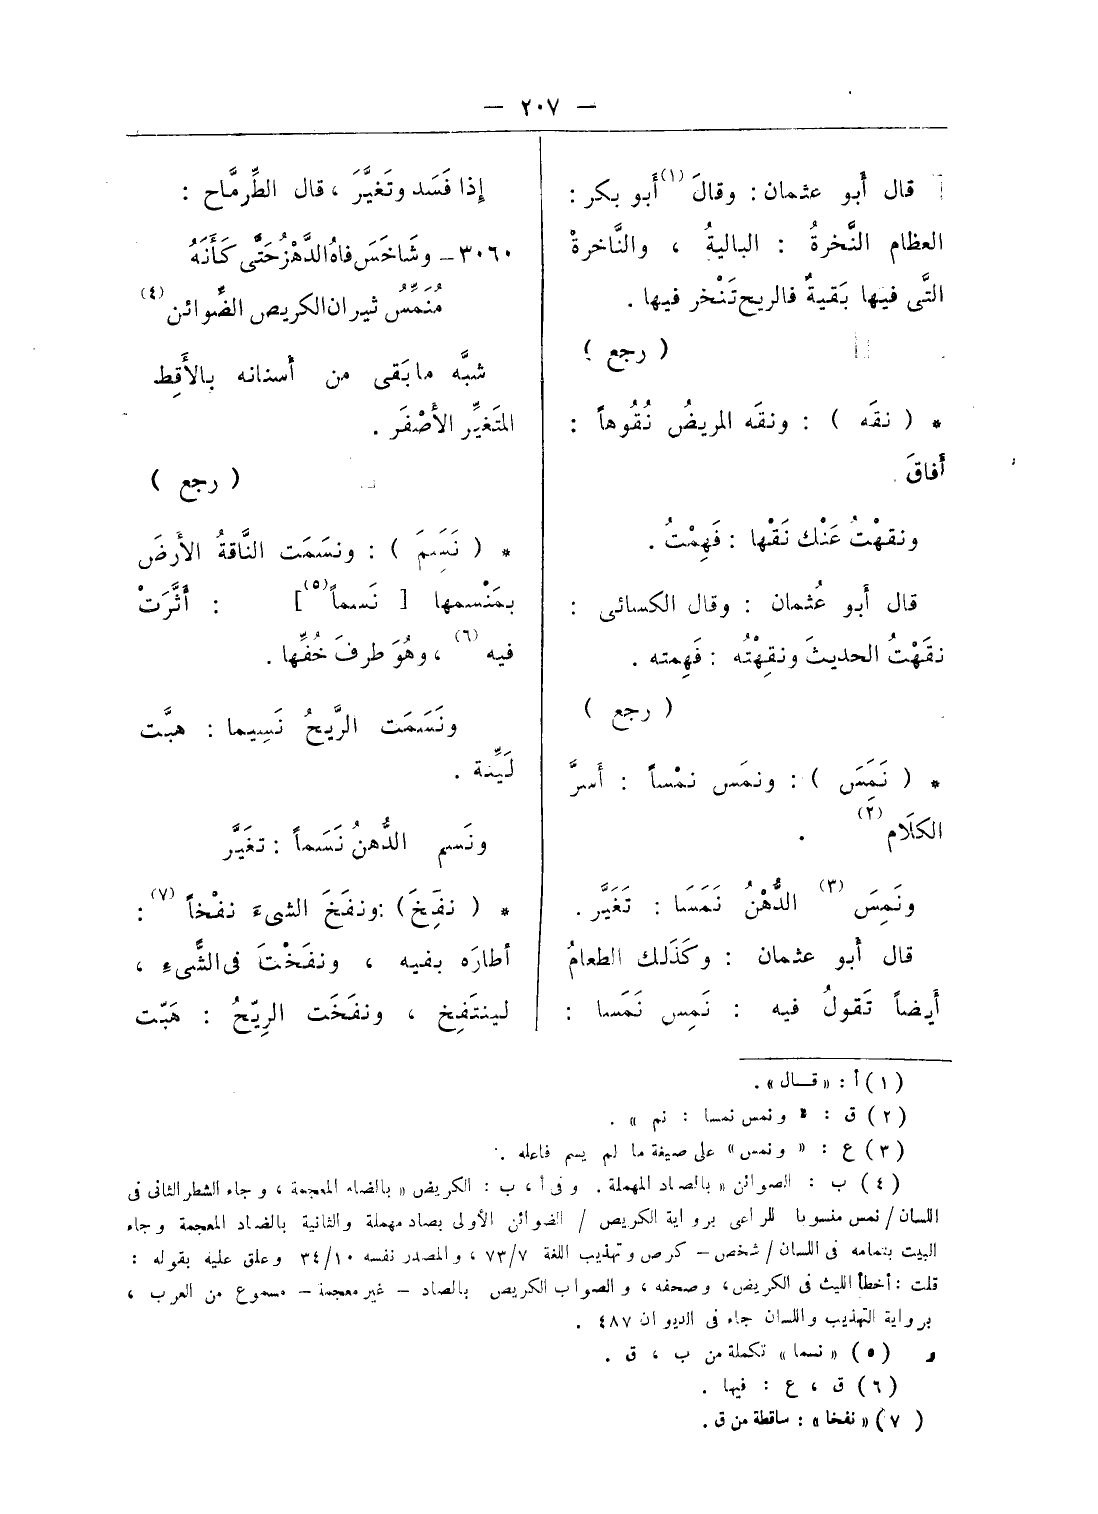 — ٢٠٧ —
قال أبو عثمان : وقالَ (١) أَبو بكر :
العظام النَّخرةُ : الباليةُ ، والنَّاخرةُ
التَّى فيَها بَقيةٌ فالريح تَنْخر فيها .
( رجع )
* ( نقَه ) : ونقَه المريضُ نُقُوهاً :
أَفاقَ .
ونقهْتُ عَنْك نَقْها : فَهِمْتُ .
قال أَبو عُثمان : وقال الكسائى :
نقَهْتُ الحديثَ ونقِهْتُه : فَهِمته .
( رجع )
* ( نَمَِسَ ) : ونمَس نمْساً : أَسرَّ
الكلَامَ (٢) .
ونَمِسَ (٣) الدُّهْنُ نَمَسَا : تَغيَّر .
قال أَبو عثمان : وكَذَلك الطعامُ
أَيضاً تَقولُ فيه : نَمِس نَمَسا :
إذا فَسَد وتَغيَّرَ ، قال الطِّرمَّاح :
٣٠٦٠ – وشَاخَسَ فاهُ الدَّهْرُ حَتَّى كَأَنَّهُ
مُنَمِّسُ ثيران الكريص الضَّوائن (٤)
شبَّه مابَقى من أسنانه بالأَقِط
المتَغيِّر الأَصْفَر .
( رجع )
* ( نَسَِمَ ) : ونسَمَت النَّاقةُ الأَرضَ
بمَنْسمها [ نَسماً (٥) ] : أَثَّرَتْ
فيه (٦) ، وهُوَ طرفَ خُفِّها .
ونَسَمَت الرَّيحُ نَسِيما : هبَّت
لَيِّنة .
ونَسم الدُّهنُ نَسَماً : تغَيَّر
* ( نفَخَ ) : ونفَخَ الشىءَ نفْخاً (٧) :
أطارَه بفيه ، ونفَخْتَ فى الشَّىءِ ،
لينتَفِخ ، ونفَخَت الرِيّحُ : هَبّت
(١) أ : « قـال » .
(٢) ق : « ونمس نمسا : نم » .
(٣) ع : « ونمس » على صيغة ما لم يسم فاعله .
(٤) ب : الصوائن » بالصاد المهملة . وفى أ ، ب : الكريض » بالضاد المعجمة ، وجاء الشطر الثانى فى
اللسان / نمس منسوبا للراعى برواية الكريص / الضوائن الأولى بصاد مهملة والثانية بالضاد المعجمة وجاء
البيت بتمامه فى اللسان / شخص – كرص وتهذيب اللغة ٧٣/٧ ، والمصدر نفسه ٣٤/١٠ وعلق عليه بقوله :
قلت : أخطأ الليث فى الكريض ، وصحفه ، والصواب الكريص بالصاد – غير معجمة – مسموع من العرب ،
برواية التهذيب واللسان جاء فى الديوان ٤٨٧ .
(٥) « نسما » تكملة من ب ، ق .
(٦) ق ، ع : فيها .
(٧) « نفخا » : ساقطة من ق .